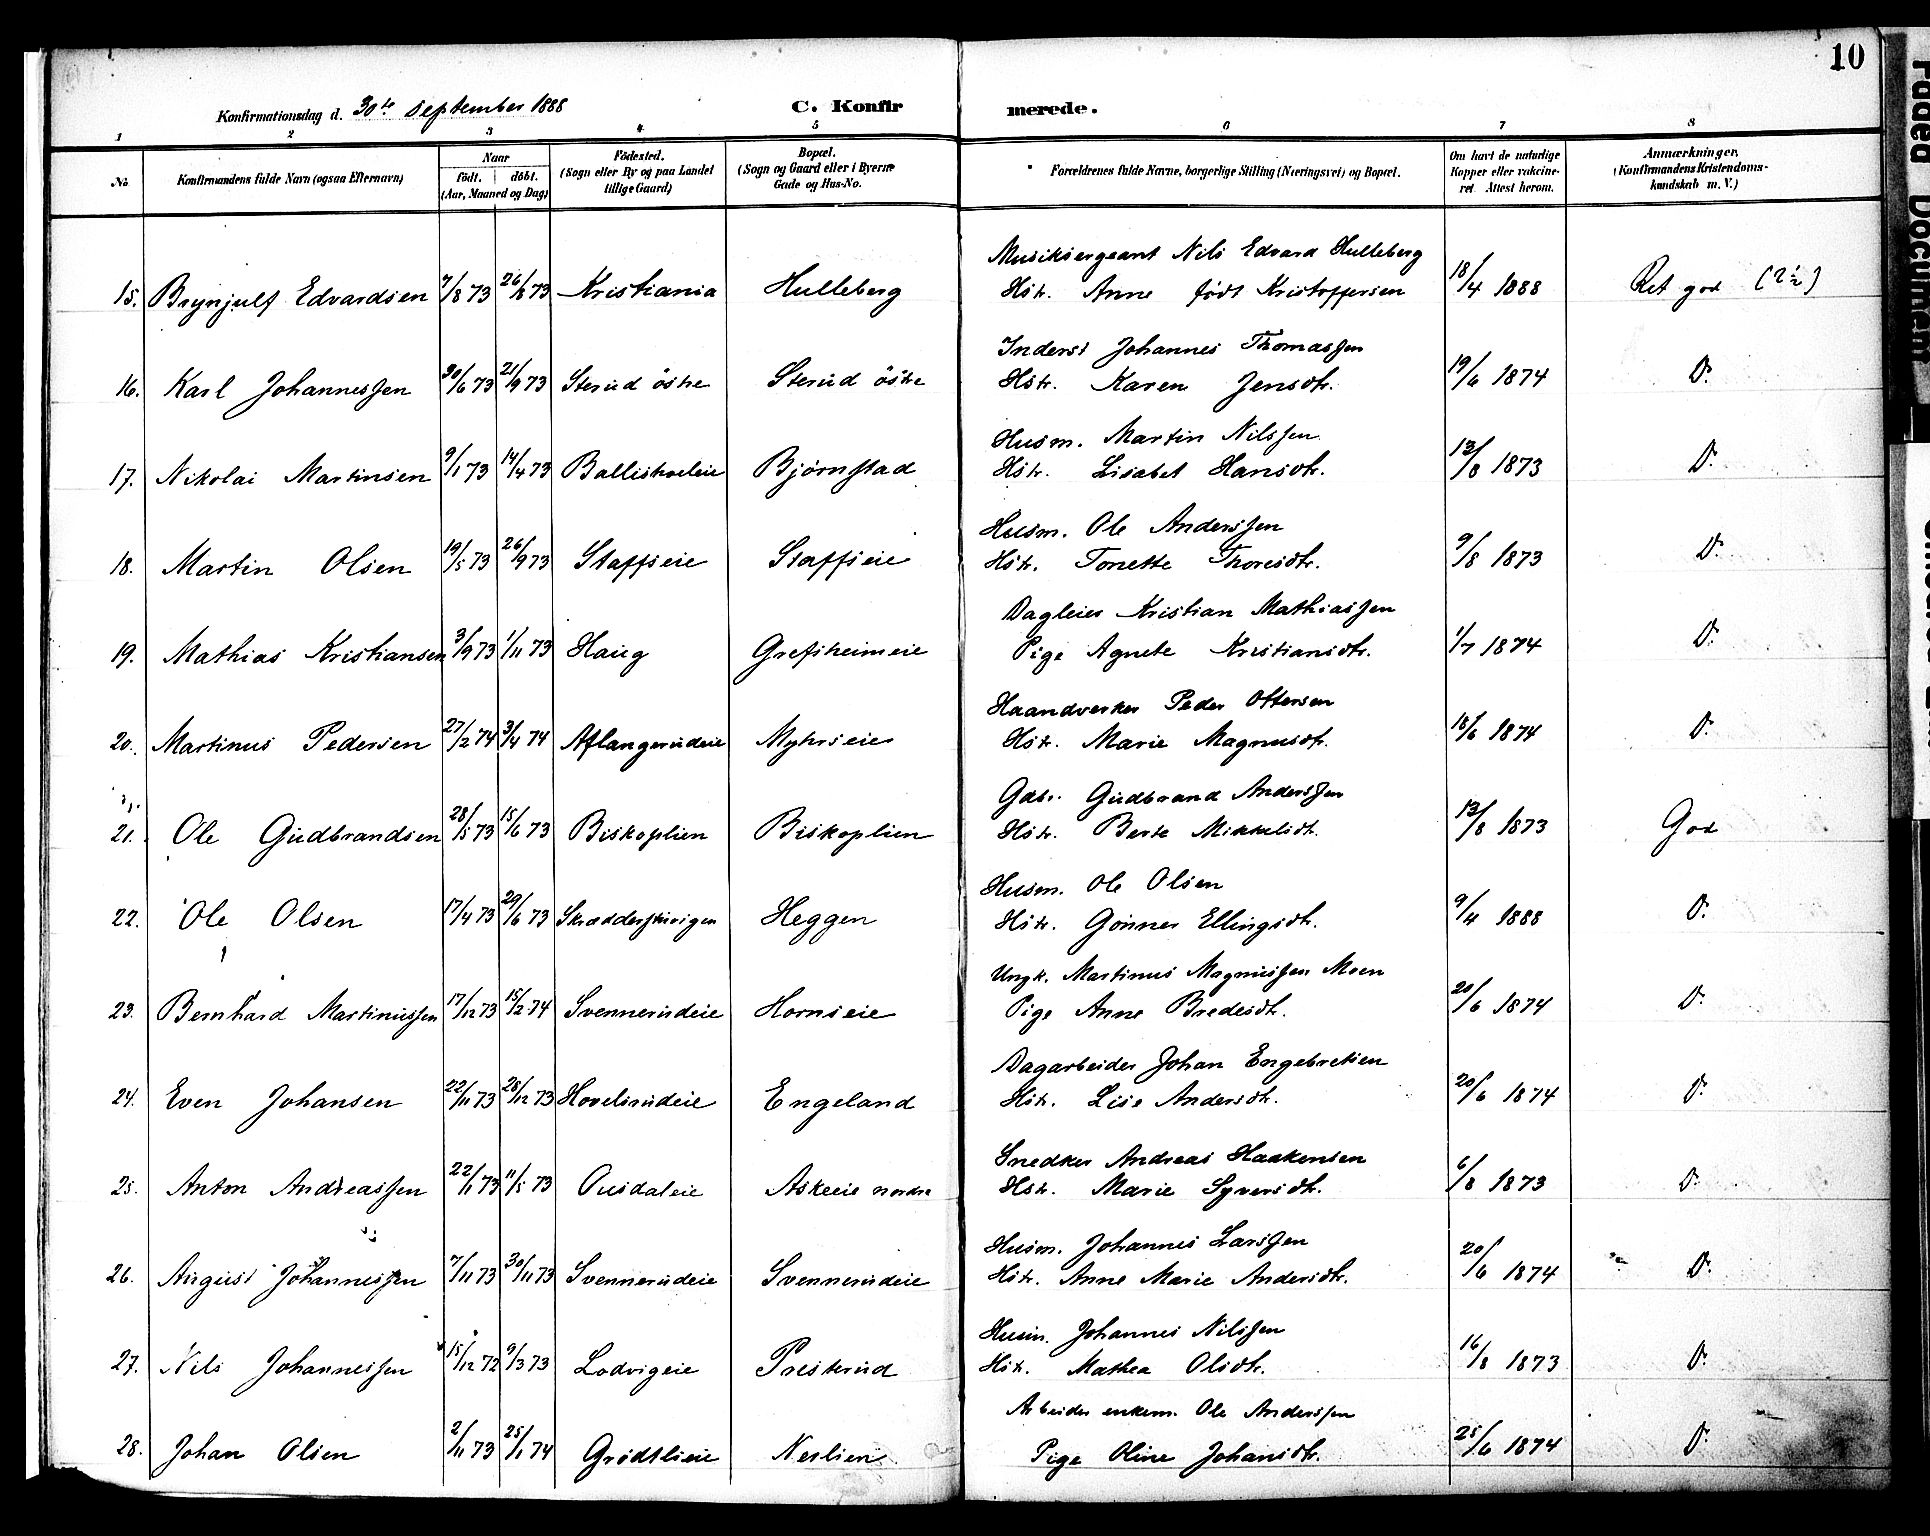 10
Konfirmationsdag d. 30te September 1888
C. Konfirmerede.
1 2 3 4 5 6 7 8
No. Konfirmandens fulde Navn (ogsaa Efternavn) Naar født. døbt. (Aar, Maaned og Dag) Fødested. (Sogn eller By og paa Landet tillige Gaard) Bopæl. (Sogn og Gaard eller i Byerne Gade og Hus-No. Forældrenes fulde Navne, borgerlige Stilling (Næringsvei) og Bopæl. Om havt de naturlige Kopper eller vakcineret. Attest herom. Anmærkninger. (Konfirmandens Kristendomskundskab m. V.)
Musiksergeant Nils Edvard Hulleberg
15. Brynjulf Edvardsen 7/8 73 26/8 73 Kristiania Hulleberg Hstr. Anne født Kristoffersen 18/4 1888 Ret god (2½)
Inderst Johannes Thomassen
16. Karl Johannessen 30/6 73 21/9 73 Sterud östre Sterud östre Hstr. Karen Jensdtr. 19/6 1874 Do.
Husm. Martin Nilssen
17. Nikolai Martinsen 9/1 73 14/4 73 Ballisholeie Bjørnstad Hstr. Lisabet Hansdtr. 13/8 1873 Do.
Husm. Ole Anderssen
18. Martin Olsen 19/5 73 26/9 73 Staffseie Staffseie Hstr. Tonette Thoresdtr. 9/8 1873 Do.
Dagleier Kristian Mathiassen
19. Mathias Kristiansen 3/9 73 1/11 73 Haug Grefsheimeie Pige Agnete Kristiansdtr. 1/7 1874 Do.
Haandverker Peder Ottersen
20. Martinus Pedersen 27/2 74 3/4 74 Aflangerudeie Myhrseie Hstr. Marie Magnusdtr. 18/6 1874 Do.
Gdbr. Gudbrand Anderssen
21. Ole Gudbrandsen 28/5 73 15/6 73 Biskoplien Biskoplien Hstr. Berte Mikkelsdtr. 13/8 1873 God
Husm. Ole Olsen
22. Ole Olsen 17/4 73 29/6 73 Heggen Hstr. Gunner Ellingsdtr. 9/4 1888 Do.
Ungk. Martinus Magnussen Moen
23. Bernhard Martinussen 17/12 73 15/2 74 Svennerudeie Hornseie Pige Anne Bredesdtr. 20/6 1874 Do.
Dagarbeider Johan Engebretsen
24. Even Johansen 22/11 73 28/12 73 Hovelsrudeie Engeland Hstr. Lise Andersdtr. 20/6 1874 Do.
Snedker Andreas Haakensen
25. Anton Andreassen 22/1 73 11/5 73 Ousdaleie Askeeie nordre Hstr. Marie Syversdtr. 6/8 1873 Do.
Husm. Johannes Larssen
26. August Johannessen 7/11 73 30/11 73 Svennerudeie Svennerudeie Hstr. Anne Marie Andersdtr. 20/6 1874 Do.
Husm. Johannes Nilssen
27. Nils Johannessen 15/12 72 9/3 73 Lodvigeie Presterud Hstr. Mathea Olsdtr. 16/8 1873 Do.
Arbeider enkem. Ole Anderssen
28. Johan Olsen 2/11 73 25/1 74 Grødtlieie Neslien Pige Oline Johansdtr. 25/6 1874 Do.